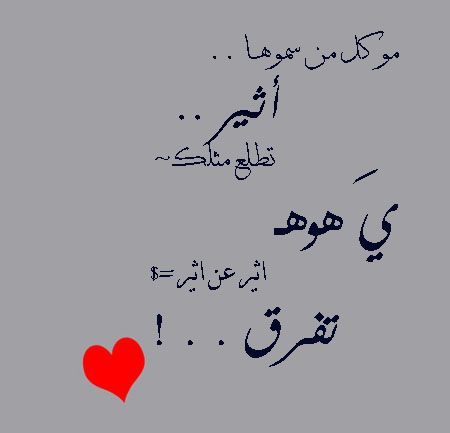 مو كل من سموها . .
أثير . .
تطلع مثلك ~
يَ هوهـ
اثير عن اثير =$
تفرق . . . !